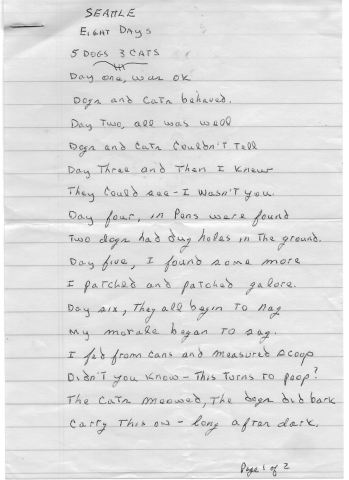 SEATTLE
EIGHT DAYS
5 DOGS 3 CATS
Day one, was ok
Dogs and Cats behaved.
Day Two, all was well
Dogs and Cats Couldn't Tell
Day Three and Then I knew
They Could see - I Wasn't you.
Day four, in Pens were found
Two dogs had dug holes in The ground.
Day five, I found some more
I patched and patched galore.
Day six, They all begin To nag
My morale began To sag.
I fed from cans and measured scoop
Didn't you know - This Turns To poop?
The Cats meowed, The dogs did bark
Carry This on - long after dark.
Page 1 of 2